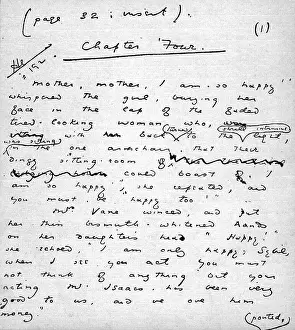 (page 32; insert).
(1)
Chapter Four.
"Mother, mother, I am so happy"
whispered the girl, burying her
face in the lap of the faded
tired-looking woman who,
with her back to the
(turned) shrill intrusive light,
was sitting
in the one armchair that their
dingy sitting-room
could boast of. "I
am so happy," she repeated, and
you must be happy too"
Mrs Vane winced, and put
her thin bismuth-whitened hands
on her daughter's head. "Happy,"
she echoed, "I am only happy, Sybil,
when I see you act. You must
not think of anything but your
acting. Mr. Isaacs has been very
good to us, and we owe him
money."
(pouted,